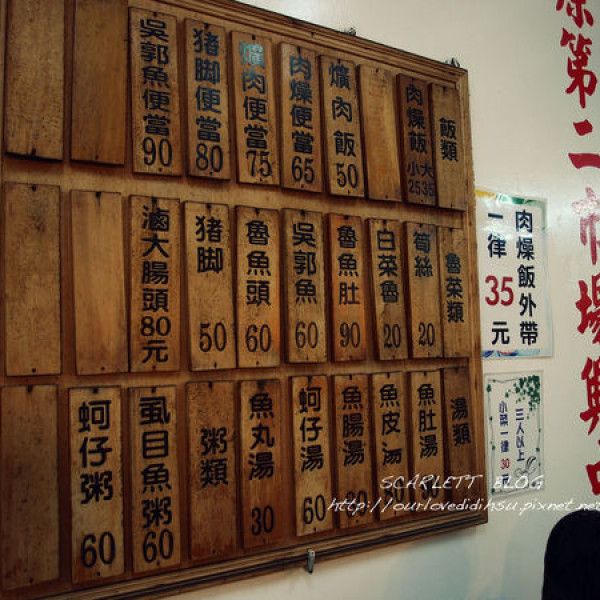 飯類
肉燥飯 小25 大35
爌肉飯 50
肉燥便當 65
爌肉便當 75
豬脚便當 80
吳郭魚便當 90
魯菜類
筍絲 20
白菜魯 20
魯魚肚 90
吳郭魚 60
魯魚頭 60
猪脚 50
滷大腸頭 80元
湯類
魚肚湯
魚皮湯
魚腸湯
蚵仔湯 60
魚丸湯 30
粥類
虱目魚粥 60
蚵仔粥 60
肉燥飯外帶
一律35元
三人以上
小菜一律30
第二市場
SCARLETT BLOG
http://ourlovedidihsu.pixnet.net